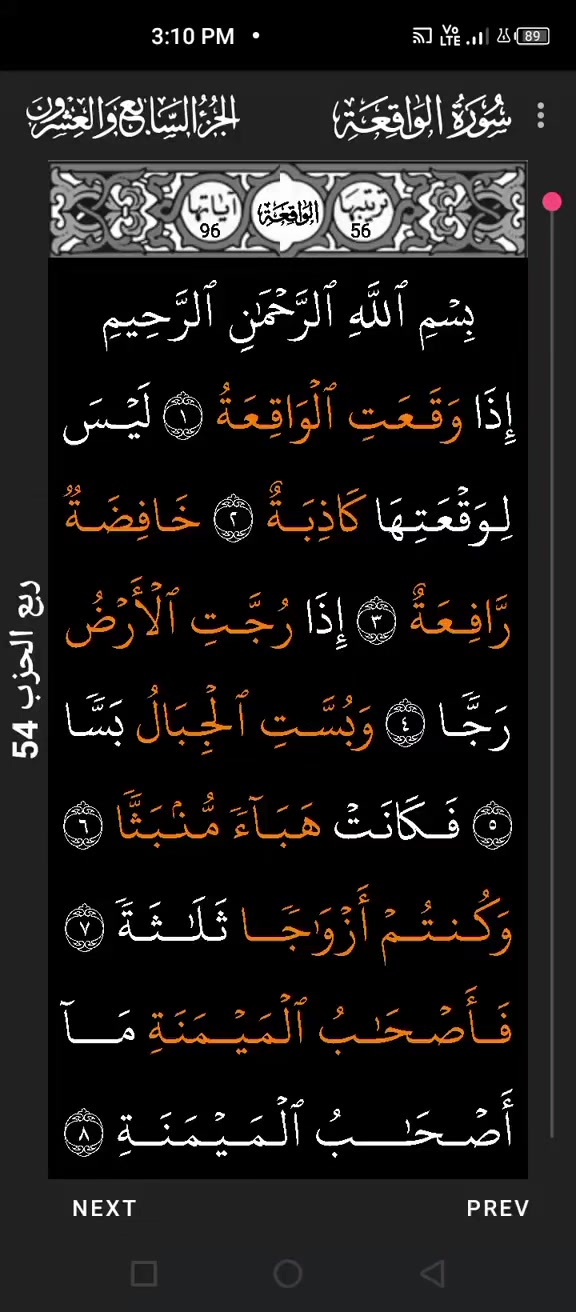 3:10 PM •
Vo LTE 89
سُورَةُ الوَاقِعَةِ
الجُزْءُ السَّابِعُ وَالعِشْرُونَ
ترتيبها 56 الواقعة آياتها 96
بِسْمِ ٱللَّهِ ٱلرَّحْمَٰنِ ٱلرَّحِيمِ
إِذَا وَقَعَتِ ٱلْوَاقِعَةُ ١ لَيْسَ
لِوَقْعَتِهَا كَاذِبَةٌ ٢ خَافِضَةٌ
رَّافِعَةٌ ٣ إِذَا رُجَّتِ ٱلْأَرْضُ
رَجًّا ٤ وَبُسَّتِ ٱلْجِبَالُ بَسًّا
٥ فَكَانَتْ هَبَآءً مُّنۢبَثًّا ٦
وَكُنتُمْ أَزْوَٰجًا ثَلَٰثَةً ٧
فَأَصْحَٰبُ ٱلْمَيْمَنَةِ مَآ
أَصْحَٰبُ ٱلْمَيْمَنَةِ ٨
ربع الحزب 54
NEXT PREV